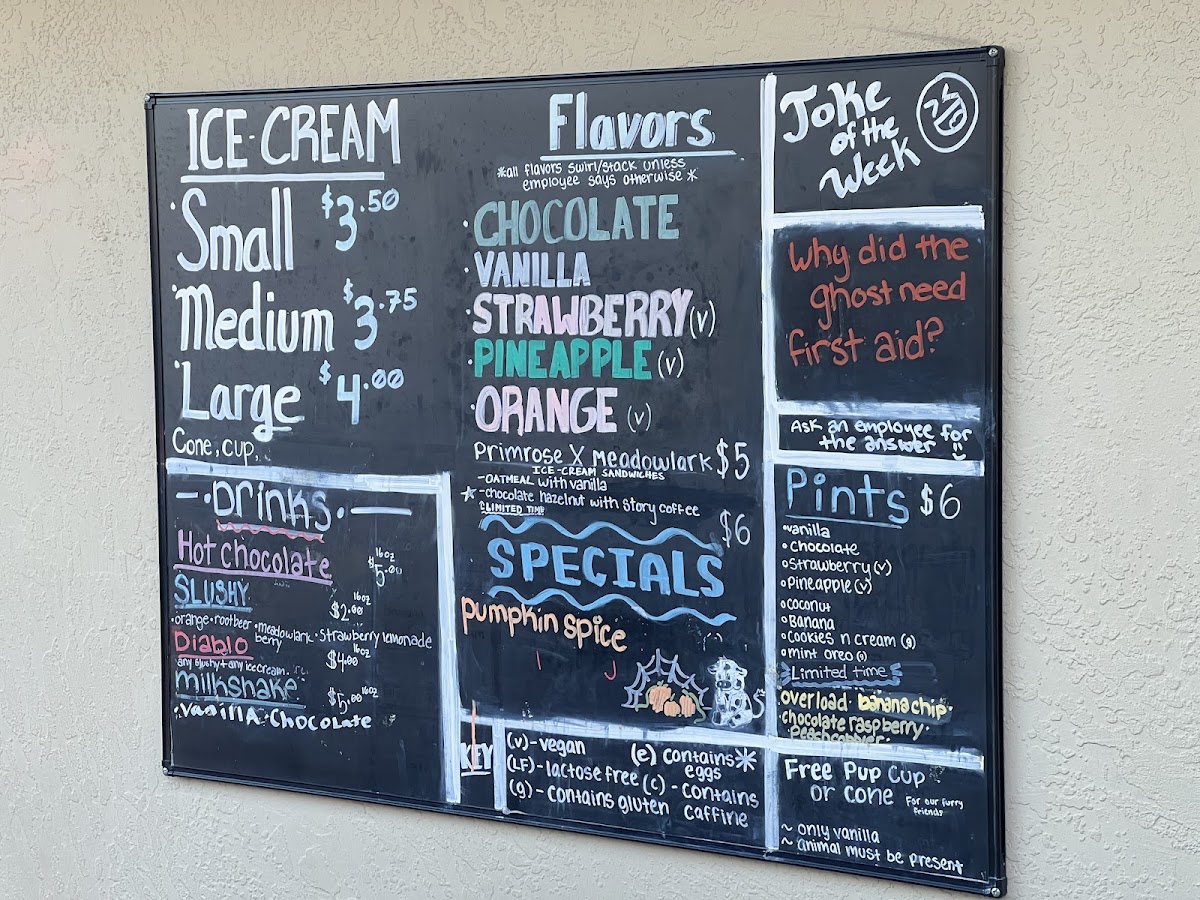 ICE-CREAM
·Small $3.50
·Medium $3.75
·Large $4.00
Cone, cup,
—·Drinks·—
Hot chocolate 16oz $5.00
SLUSHY 16oz $2.00
·orange·rootbeer·meadowlark berry·Strawberry lemonade
Diablo 16oz $4.00
any slushy + any ice cream.
milkshake $5.00 16oz
·Vanilla·Chocolate
Flavors
*all flavors swirl/stack unless
employee says otherwise*
·CHOCOLATE
·VANILLA
·STRAWBERRY(v)
·PINEAPPLE(v)
·ORANGE (v)
Primrose X Meadowlark $5
ICE-CREAM SANDWICHES
-OATMEAL with vanilla
-chocolate hazelnut with Story coffee
LIMITED TIME
$6
SPECIALS
pumpkin spice
KEY
(v)-vegan
(LF)-lactose free
(g)-contains gluten
(e) contains*
eggs
(c)-contains
caffine
Joke
of the
Week
Why did the
ghost need
first aid?
Ask an employee for
the answer
Pints $6
·vanilla
·chocolate
·Strawberry(v)
·Pineapple(v)
·coconut
·Banana
·Cookies n cream(g)
·mint oreo
Limited time
overload·banana chip·
·chocolate raspberry·
Free Pup Cup
or cone For our furry
friends
~ only vanilla
~ animal must be present